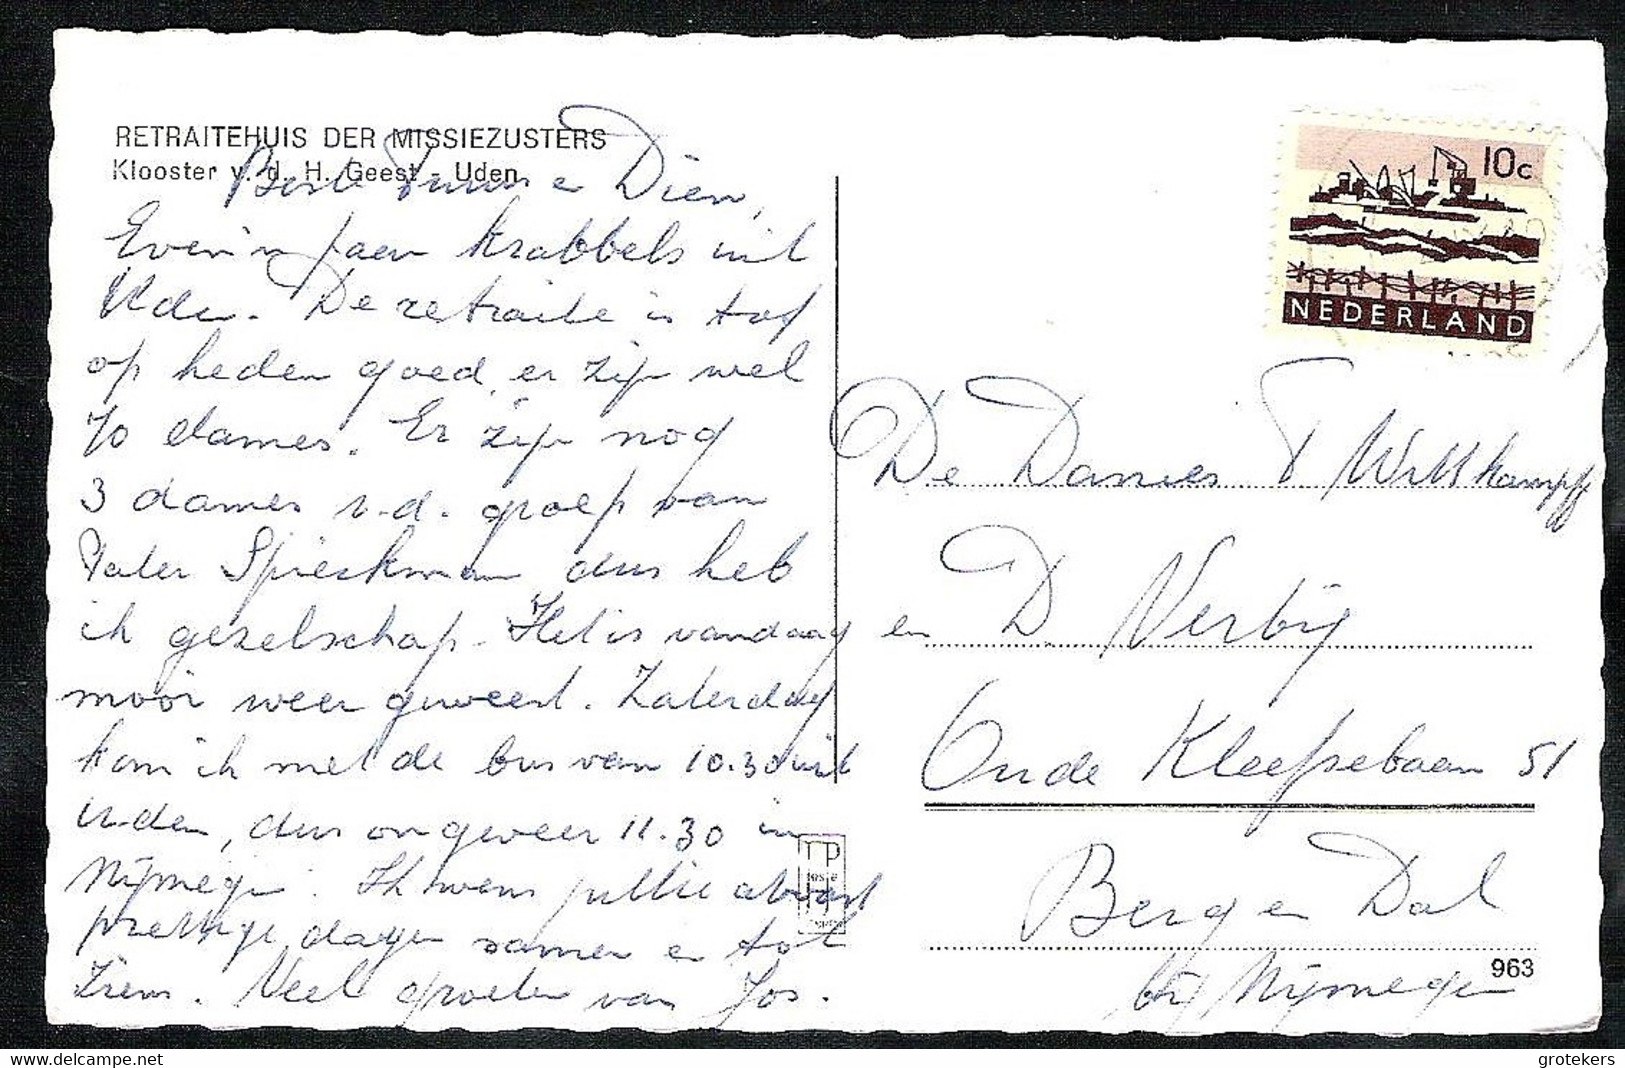 RETRAITEHUIS DER MISSIEZUSTERS
Klooster v. d. H. Geest - Uden
Beste Truus en Diën,
Even 'n paar krabbels uit
Uden. De retraite is tot
op heden goed, er zijn wel
70 dames. Er zijn nog
3 dames v.d. groep van
Pater Spieckman dus heb
ik gezelschap. Het is vandaag
mooi weer geweest. Zaterdag
kom ik met de bus van 10.30 uit
Uden, dus ongeveer 11.30 in
Nijmegen. Ik wens jullie alvast
prettige dagen samen en tot
ziens. Veel groeten van Jos.
10c
NEDERLAND
De Dames T Wittkampf
en D. Verbij
Oude Kleefsebaan 51
Berg en Dal
963
bij Nijmegen
grotekers
delcampe.net